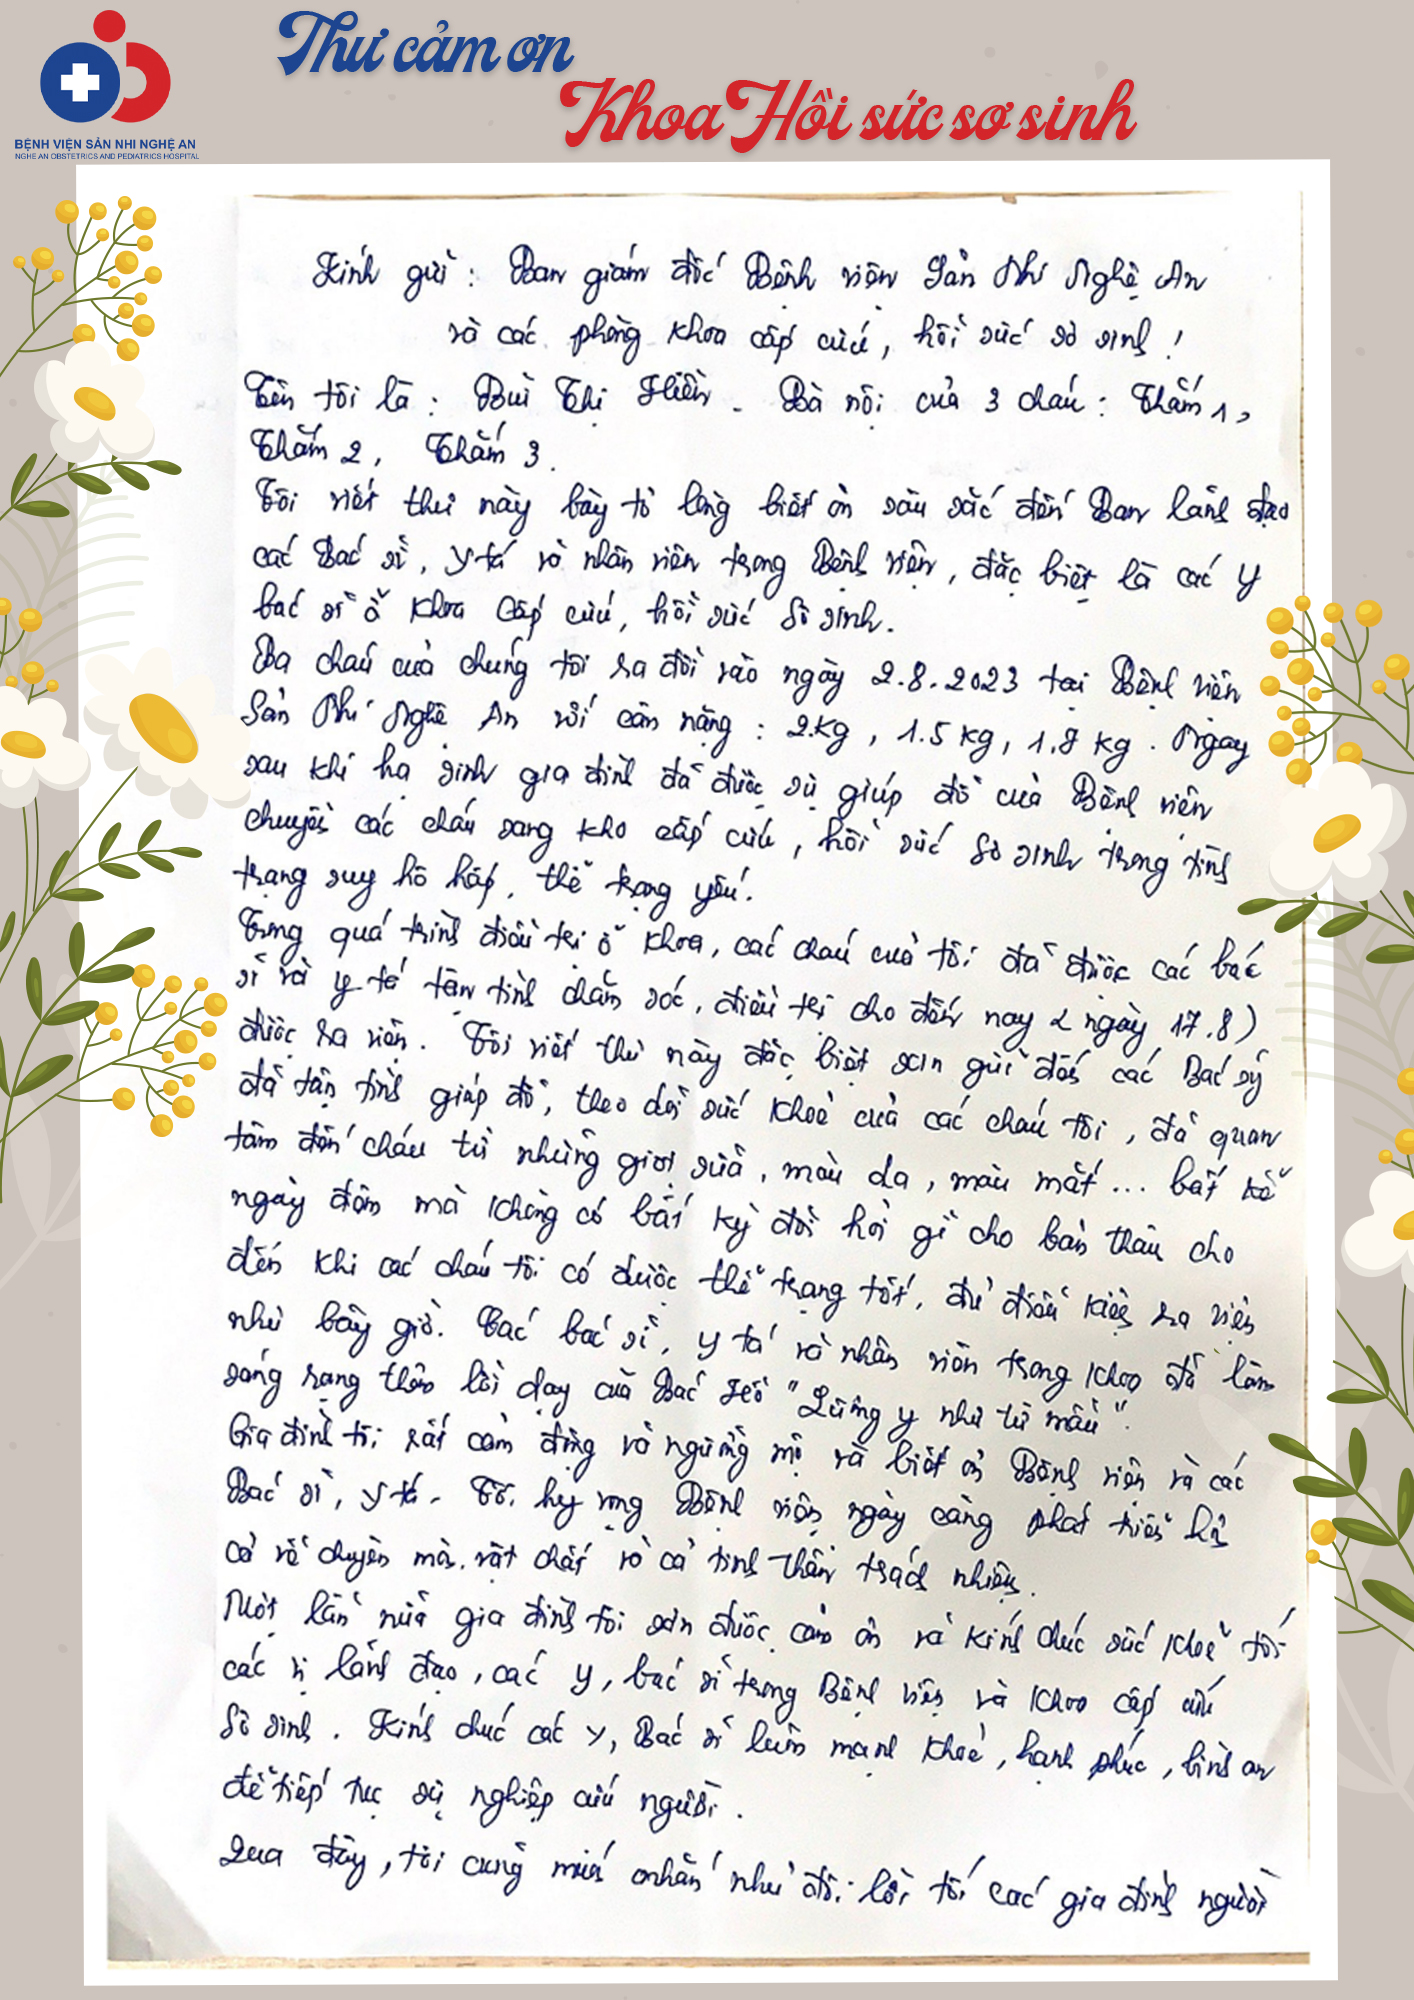 Thư cảm ơn
Khoa Hồi sức sơ sinh
BỆNH VIỆN SẢN NHI NGHỆ AN
NGHE AN OBSTETRICS AND PEDIATRICS HOSPITAL
Kính gửi : Ban giám đốc Bệnh viện Sản Nhi Nghệ An
và các phòng khoa cấp cứu, hồi sức sơ sinh !
Tên tôi là : Bùi Thị Hiền - Bà nội của 3 cháu : Thắm 1,
Thắm 2, Thắm 3.
Tôi viết thư này bày tỏ lòng biết ơn sâu sắc đến Ban lãnh đạo
các Bác sĩ, y tá và nhân viên trong Bệnh viện, đặc biệt là các y
bác sĩ ở khoa Cấp cứu, hồi sức Sơ sinh.
Ba cháu của chúng tôi ra đời vào ngày 2.8.2023 tại Bệnh viện
Sản Nhi Nghệ An với cân nặng : 2.kg, 1.5 kg, 1,8 kg. Ngay
sau khi hạ sinh gia đình đã được sự giúp đỡ của Bệnh viện
chuyển các cháu sang kho cấp cứu, hồi sức Sơ sinh trong tình
trạng suy hô hấp, thể trạng yếu.
Trong quá trình điều trị ở khoa, các cháu của tôi đã được các bác
sĩ và y tá tận tình chăm sóc, điều trị cho đến nay ( ngày 17.8)
được ra viện. Tôi viết thư này đặc biệt xin gửi đến các Bác sỹ
đã tận tình giúp đỡ, theo dõi sức khoẻ của các cháu tôi, đã quan
tâm đến cháu từ những giọt sữa, màu da, màu mắt ... bất kể
ngày đêm mà không có bất kỳ đòi hỏi gì cho bản thân cho
đến khi các cháu tôi có được thể trạng tốt, đủ điều kiện ra viện
như bây giờ. Các bác sĩ, y tá và nhân viên trong khoa đã làm
sáng rạng thêm lời dạy của Bác Hồ "Lương y như từ mẫu".
Gia đình tôi rất cảm động và ngưỡng mộ và biết ơn Bệnh viện và các
Bác sĩ, y tá. Tôi hy vọng Bệnh viện ngày càng phát triển hơn
cả về chuyên môn, vật chất và cả tinh thần trách nhiệm.
Một lần nữa gia đình tôi xin được cảm ơn và kính chúc sức khoẻ tới
các vị lãnh đạo, các y, bác sĩ trong Bệnh viện và khoa cấp cứu
Sơ sinh. Kính chúc các y, Bác sĩ luôn mạnh khoẻ, hạnh phúc, bình an
để tiếp tục sự nghiệp cứu người.
Qua đây, tôi cũng muốn nhắn nhủ đôi lời tới các gia đình người